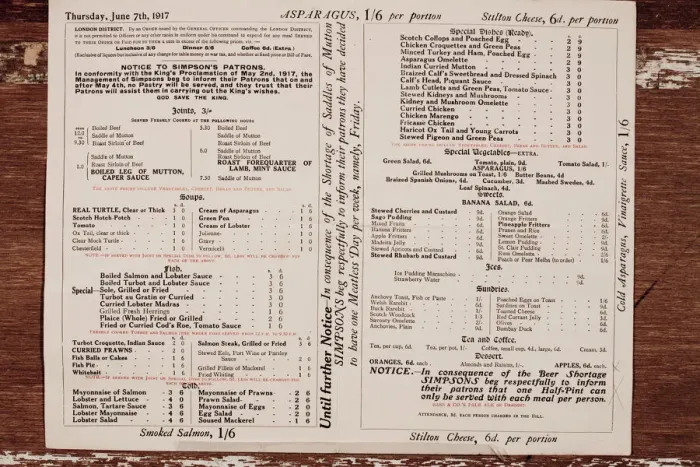 Thursday, June 7th, 1917
ASPARAGUS, 1/6 per portion
Stilton Cheese, 6d. per portion
LONDON DISTRICT.
Luncheon 3/6 Dinner 5/6 Coffee 6d. (Extra.)
NOTICE TO SIMPSON'S PATRONS.
In conformity with the King's Proclamation of May 2nd, 1917, the
Management of Simpsons beg to inform their Patrons that on and
after May 4th, no Pastry will be served, and they trust that their
Patrons will assist them in carrying out the King's wishes.
GOD SAVE THE KING.
Joints, 3/-
SERVED FRESHLY COOKED AT THE FOLLOWING HOURS
Boiled Beef
Saddle of Mutton
Roast Sirloin of Beef
Saddle of Mutton
Roast Sirloin of Beef
BOILED LEG OF MUTTON,
CAPER SAUCE
5.30 Boiled Beef
Saddle of Mutton
Roast Sirloin of Beef
6.0 Saddle of Mutton
Roast Sirloin of Beef
ROAST FOREQUARTER OF
LAMB, MINT SAUCE
7.30 Saddle of Mutton
Soups.
REAL TURTLE, Clear or Thick 3 0
Scotch Hotch Potch - 1 0
Tomato - 1 0
Ox Tail, clear or thick
Clear Mock Turtle - 1 6
Chesterfield
Cream of Asparagus - 1 6
Green Pea
Cream of Lobster - 1 6
Julienne
Gravy
Vermicelli
Fish.
Boiled Salmon and Lobster Sauce - 3 6
Boiled Turbot and Lobster Sauce - 3 6
Special—Sole, Grilled or Fried - 3 6
Turbot au Gratin or Curried - 3 0
Curried Lobster Madras - 3 0
Grilled Fresh Herrings - 1 6
Plaice (Whole) Fried or Grilled - 2 6
Fried or Curried Cod's Roe, Tomato Sauce - 1 6
Turbot Croquette, Indian Sauce 2 0
CURRIED PRAWNS - 2 6
Fish Balls or Cakes - 1 6
Fish Pie - 1 6
Whitebait - 1 6
Salmon Steak, Grilled or Fried 3 6
Stewed Eels, Port Wine or Parsley
Sauce
Grilled Fillets of Mackerel - 1 6
Fried Whiting - 1 6
Cold.
Mayonnaise of Salmon - 3 6
Lobster and Lettuce - 4 0
Salmon, Tartare Sauce - 3 6
Lobster Mayonnaise - 4 6
Lobster Salad - 4 6
Mayonnaise of Prawns - 2 6
Prawn Salad - 2 6
Mayonnaise of Eggs - 2 0
Egg Salad - 2 0
Soused Mackerel - 1 6
Smoked Salmon, 1/6
Until further Notice—In consequence of the Shortage of Saddles of Mutton
SIMPSONS beg respectfully to inform their patrons they have decided
to have one Meatless Day per week, namely, Friday.
Special Dishes (Ready).
Scotch Collops and Poached Egg - 2 9
Chicken Croquettes and Green Peas - 2 9
Minced Turkey and Ham, Poached Egg - 2 9
Asparagus Omelette - 3 0
Indian Curried Mutton - 3 0
Braized Calf's Sweetbread and Dressed Spinach - 3 0
Calf's Head, Piquant Sauce - 3 0
Lamb Cutlets and Green Peas, Tomato Sauce - 3 0
Stewed Kidneys and Mushrooms - 3 0
Kidney and Mushroom Omelette - 3 0
Curried Chicken - 3 0
Chicken Marengo - 3 0
Fricasie Chicken - 3 0
Haricot Ox Tail and Young Carrots - 3 0
Stewed Pigeon and Green Peas - 3 0
Special Vegetables—EXTRA.
Green Salad, 6d. Tomato, plain, 9d. Tomato Salad, 1/-
ASPARAGUS, 1/6
Grilled Mushrooms on Toast, 1/6 Butter Beans, 4d
Braized Spanish Onions, 4d. Cucumber, 3d. Mashed Swedes, 4d.
Leaf Spinach, 4d.
Sweets.
BANANA SALAD, 6d.
Stewed Cherries and Custard 9d.
Sago Pudding
Mixed Fruits
Banana Fritters
Apple Fritters
Madeira Jelly
Stewed Apricots and Custard
Stewed Rhubarb and Custard
Orange Salad
Orange Fritters
Pineapple Fritters
Prunes and Rice
Sweet Omelette
Lemon Pudding
St. Clair Pudding
Rum Omelette
Peach or Pear Melba (to order)
Ices.
Ice Pudding Maraschino - 9d.
Strawberry Water
Sundries.
Anchovy Toast, Fish or Paste 1/-
Welsh Rarebit
Buck Rarebit
Scotch Woodcock
Savoury Omelette
Anchovies, Plain
Poached Eggs on Toast
Sardines on Toast
Toasted Cheese
Red Currant Jelly
Olives
Bombay Duck
Tea and Coffee.
Tea, per cup, 6d. Tea, per pot, 1/- Coffee, small cup, 4d., large, 6d. Cream, 3d.
Dessert.
ORANGES, 6d. each. Almonds and Raisins, 1/- APPLES, 6d. each.
NOTICE.—In consequence of the Beer Shortage
SIMPSONS beg respectfully to inform
their patrons that one Half-Pint can
only be served with each meal per person.
ATTENDANCE, 3d. EACH PERSON CHARGED IN THE BILL.
Stilton Cheese, 6d. per portion
Cold Asparagus, Vinaigrette Sauce, 1/6